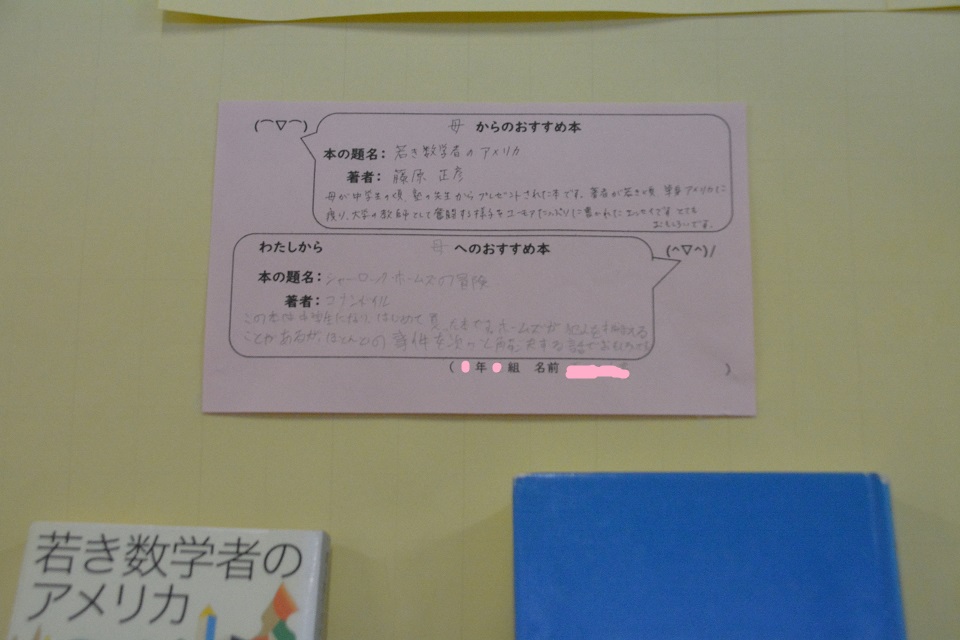 (⌒▽⌒)
母 からのおすすめ本
本の題名： 若き数学者のアメリカ
著者： 藤原 正彦
母が中学生の頃、塾の先生からプレゼントされた本です。著者が若き頃、単身アメリカに
渡り、大学の教師として奮闘する様子をユーモアたっぷりに書かれたエッセイです。とても
おもしろいです。
わたしから 母 へのおすすめ本
(^▽^)/
本の題名： シャーロック・ホームズの冒険
著者： コナン・ドイル
この本は中学生になり、はじめて買った本です。ホームズが
ことがあるが、ほとんどの事件を次々と解決する話で
( 年 組 名前 )
若き数学者の
アメリカ